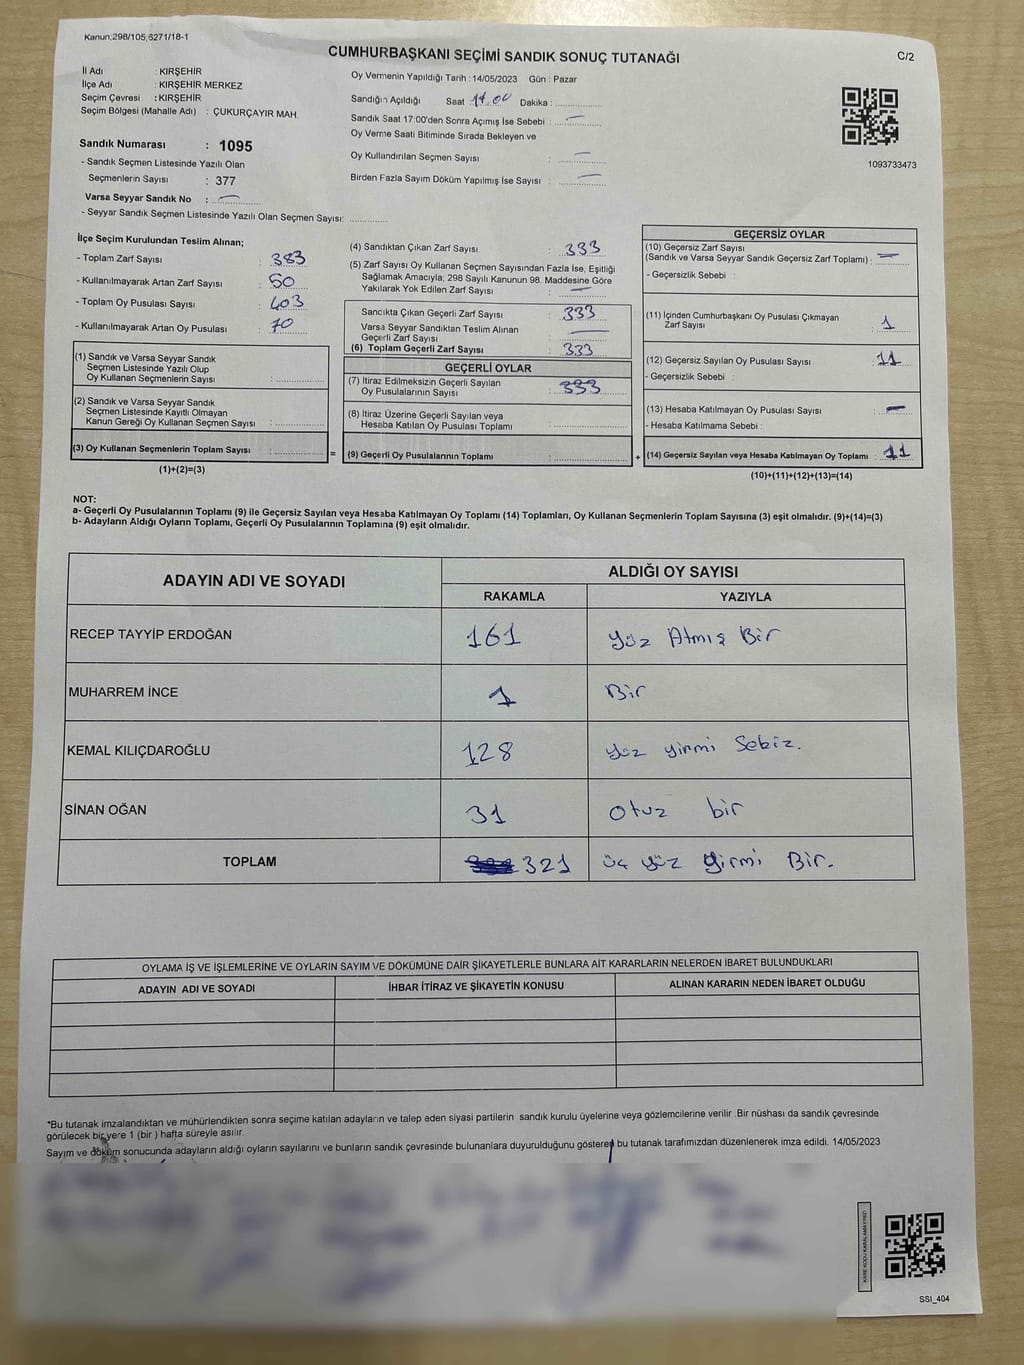 Kanun:298/105,6271/18-1
CUMHURBAŞKANI SEÇİMİ SANDIK SONUÇ TUTANAĞI
C/2
İl Adı : KIRŞEHİR
İlçe Adı : KIRŞEHİR MERKEZ
Seçim Çevresi : KIRŞEHİR
Seçim Bölgesi (Mahalle Adı) : ÇUKURÇAYIR MAH.
Sandık Numarası : 1095
- Sandık Seçmen Listesinde Yazılı Olan
Seçmenlerin Sayısı : 377
Varsa Seyyar Sandık No : —
- Seyyar Sandık Seçmen Listesinde Yazılı Olan Seçmen Sayısı:
Oy Vermenin Yapıldığı Tarih : 14/05/2023 Gün : Pazar
Sandığın Açıldığı Saat Dakika :
Sandık Saat 17:00'den Sonra Açımış İse Sebebi : —
Oy Verme Saati Bitiminde Sırada Bekleyen ve
Oy Kullandırılan Seçmen Sayısı : —
Birden Fazla Sayım Döküm Yapılmış İse Sayısı : —
1093733473
İlçe Seçim Kurulundan Teslim Alınan;
- Toplam Zarf Sayısı : 383
- Kullanılmayarak Artan Zarf Sayısı : 50
- Toplam Oy Pusulası Sayısı : 403
- Kullanılmayarak Artan Oy Pusulası : 70
(1) Sandık ve Varsa Seyyar Sandık
Seçmen Listesinde Yazılı Olup
Oy Kullanan Seçmenlerin Sayısı :
(2) Sandık ve Varsa Seyyar Sandık
Seçmen Listesinde Kayıtlı Olmayan
Kanun Gereği Oy Kullanan Seçmen Sayısı :
(3) Oy Kullanan Seçmenlerin Toplam Sayısı :
(1)+(2)=(3)
=
(4) Sandıktan Çıkan Zarf Sayısı : 333
(5) Zarf Sayısı Oy Kullanan Seçmen Sayısından Fazla İse, Eşitliği
Sağlamak Amacıyla; 298 Sayılı Kanunun 98. Maddesine Göre
Yakılarak Yok Edilen Zarf Sayısı : —
Sandıkta Çıkan Geçerli Zarf Sayısı : 333
Varsa Seyyar Sandıktan Teslim Alınan
Geçerli Zarf Sayısı : —
(6) Toplam Geçerli Zarf Sayısı : 333
GEÇERLİ OYLAR
(7) İtiraz Edilmeksizin Geçerli Sayılan
Oy Pusulalarının Sayısı : 333
(8) İtiraz Üzerine Geçerli Sayılan veya
Hesaba Katılan Oy Pusulası Toplamı :
(9) Geçerli Oy Pusulalarının Toplamı :
+
GEÇERSİZ OYLAR
(10) Geçersiz Zarf Sayısı
(Sandık ve Varsa Seyyar Sandık Geçersiz Zarf Toplamı) : —
- Geçersizlik Sebebi :
(11) İçinden Cumhurbaşkanı Oy Pusulası Çıkmayan
Zarf Sayısı : 1
(12) Geçersiz Sayılan Oy Pusulası Sayısı : 11
- Geçersizlik Sebebi :
(13) Hesaba Katılmayan Oy Pusulası Sayısı : —
- Hesaba Katılmama Sebebi :
(14) Geçersiz Sayılan veya Hesaba Katılmayan Oy Toplamı : 11
(10)+(11)+(12)+(13)=(14)
NOT:
a- Geçerli Oy Pusulalarının Toplamı (9) ile Geçersiz Sayılan veya Hesaba Katılmayan Oy Toplamı (14) Toplamları, Oy Kullanan Seçmenlerin Toplam Sayısına (3) eşit olmalıdır. (9)+(14)=(3)
b- Adayların Aldığı Oyların Toplamı, Geçerli Oy Pusulalarının Toplamına (9) eşit olmalıdır.
ADAYIN ADI VE SOYADI
ALDIĞI OY SAYISI
RAKAMLA YAZIYLA
RECEP TAYYİP ERDOĞAN 161 Yüz Atmış Bir
MUHARREM İNCE 1 Bir
KEMAL KILIÇDAROĞLU 128 yüz yirmi Sekiz.
SİNAN OĞAN 31 Otuz bir
TOPLAM 321 üç yüz yirmi Bir.
OYLAMA İŞ VE İŞLEMLERİNE VE OYLARIN SAYIM VE DÖKÜMÜNE DAİR ŞİKAYETLERLE BUNLARA AİT KARARLARIN NELERDEN İBARET BULUNDUKLARI
ADAYIN ADI VE SOYADI İHBAR İTİRAZ VE ŞİKAYETİN KONUSU ALINAN KARARIN NEDEN İBARET OLDUĞU
*Bu tutanak imzalandıktan ve mühürlendikten sonra seçime katılan adayların ve talep eden siyasi partilerin sandık kurulu üyelerine veya gözlemcilerine verilir .Bir nüshası da sandık çevresinde
görülecek bir yere 1 (bir ) hafta süreyle asılır.
Sayım ve döküm sonucunda adayların aldığı oyların sayılarını ve bunların sandık çevresinde bulunanlara duyurulduğunu gösteren bu tutanak tarafımızdan düzenlenerek imza edildi. 14/05/2023
KARE KODU KARALAMAYINIZ!
SSI_404